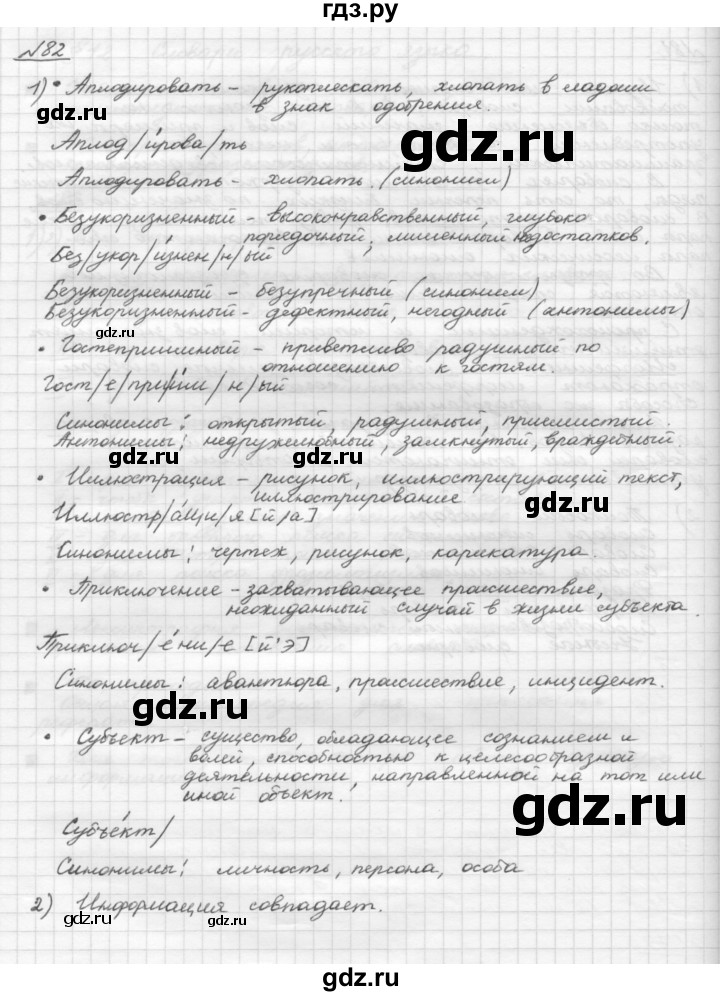 гдз.ру
№82
1) • Аплодировать – рукоплескать, хлопать в ладоши
в знак одобрения.
gdz.ru
gdz.ru
Аплод/и́рова/ть
Аплодировать – хлопать. (синоним)
• Безукоризненный – высоконравственный, глубоко
порядочный, лишенный недостатков.
gdz.ru
Без/укор/и́знен/н/ый
Безукоризненный – безупречный (синоним)
Безукоризненный – дефектный, негодный (антонимы)
gdz.ru
gdz.ru
• Гостеприимный – приветливо радушный по
отношению к гостям.
Гост/е/при/и́м/н/ый
Синонимы: открытый, радушный, приемистый.
Антонимы: недружелюбный, замкнутый, враждебный.
gdz.ru
gdz.ru
• Иллюстрация – рисунок, иллюстрирующий текст,
иллюстрирование
gdz.ru
Иллюстр/а́ци/я [й/а]
Синонимы: чертеж, рисунок, карикатура.
gdz.ru
• Приключение – захватывающее происшествие,
неожиданный случай в жизни субъекта.
gdz.ru
Приключ/е́ни/е [й'э]
Синонимы: авантюра, происшествие, инцидент.
gdz.ru
gdz.ru
• Субъект – существо, обладающее сознанием и
волей, способностью к целесообразной
деятельности, направленной на тот или
иной объект.
gdz.ru
gdz.ru
Субъе́кт/
Синонимы: личность, персона, особа
2) Информация совпадает.
gdz.ru
gdz.ru
gdz.ru